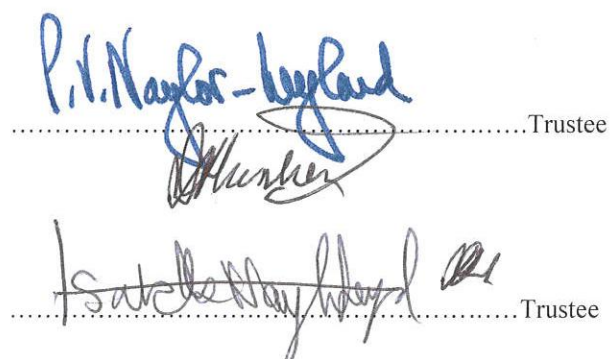 P.V. Naylor-Leyland
........................................................Trustee
Isabelle Naylor Leyland
........................................................Trustee